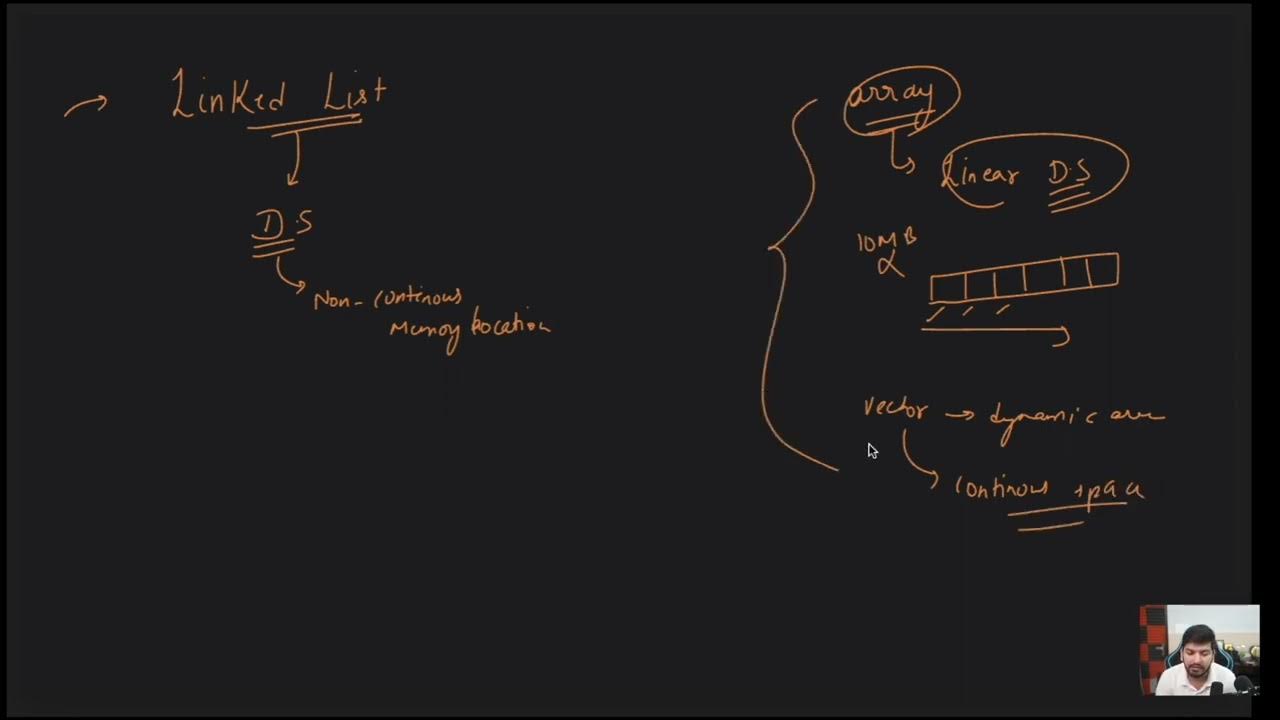 Linked List
D.S
Non-continous
Memory location
array
Linear D.S
10MB
vector → dynamic arr
continous space